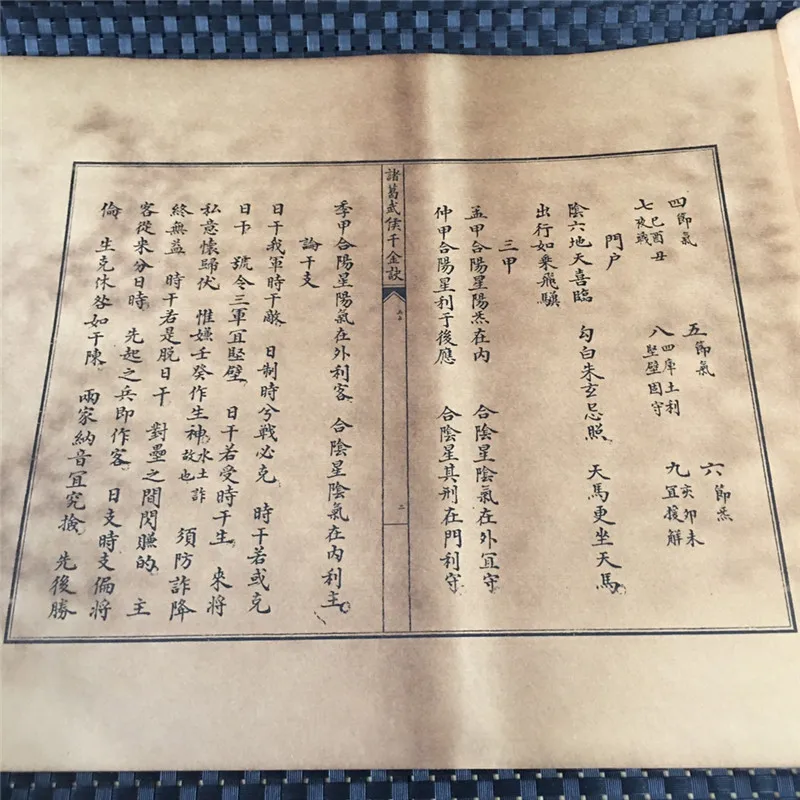 四節氣　五節氣　六節炁
七 巳酉丑 夜戰　八 四庫土利 堅壁固守　九 亥卯未 宜援解
門户
陰六地天喜臨　勾白朱玄忌照　天馬更坐天馬
出行如乘飛驥
三甲
孟甲合陽星陽炁在内　合陰星陰氣在外宜守
仲甲合陽星利于後應　合陰星其刑在門利守
諸葛武侯千金訣　二
季甲合陽星陽氣在外利客　合陰星陰氣在内利主
論干支
日干我軍時干敵　日制時兮戰必克　時干若或克
日干　號令三軍宜堅壁　日干若受時干生　來將
私意懷歸伏　惟嫌壬癸作生神 水土詐故也　須防詐降
終無益　時干若是脱日干　對壘之間閃賺的　主
客從來分日時　先起之兵即作客　日支時支偏將
倫　生克休咎如干陳　兩家納音宜究撿　先後勝